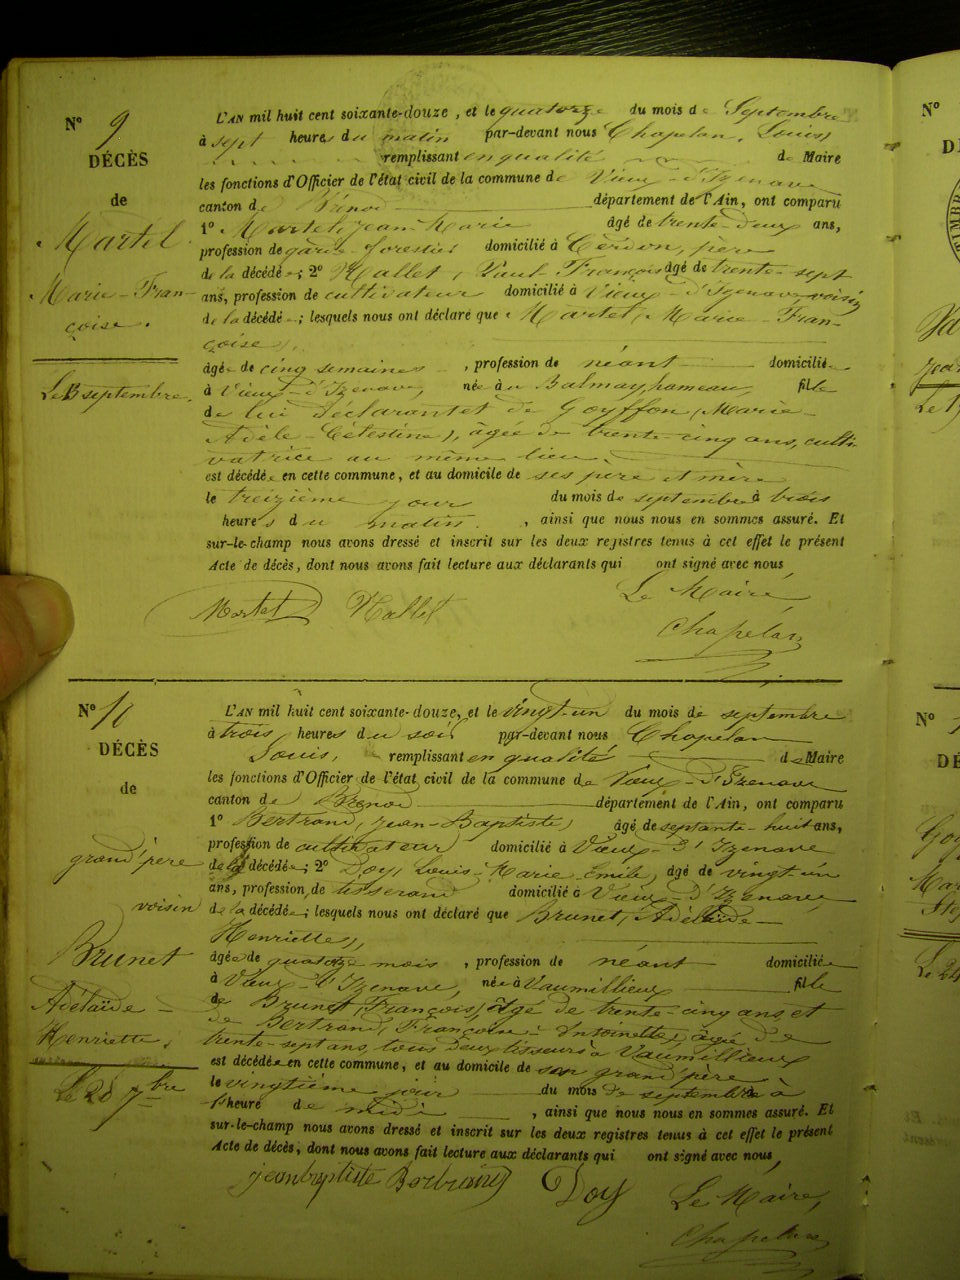 N° 9
DÉCÈS
de
Martel
Marie-Fran-
çoise.
Le 13 septembre.
L'AN mil huit cent soixante-douze, et le quatorze du mois de Septembre
à sept heures du matin par-devant nous Chapelan, Louis,
remplissant en qualité de Maire
les fonctions d'Officier de l'état civil de la commune de Vieux-d'Izenave
canton de Brénod département de l'Ain, ont comparu
1° Martel, Jean-Marie âgé de trente-deux ans,
profession de garde-forestier domicilié à Cerdon, père
de la décédée; 2° Mallet, Paul François âgé de trente-sept
ans, profession de cultivateur domicilié à Vieux-d'Izenave, voisin
de la décédée; lesquels nous ont déclaré que Martel, Marie-Fran-
çoise,
âgée de cinq semaines, profession de néant domiciliée
à Vieux-d'Izenave, née à Balmay, hameau, fille
de lui déclarant et de Goyffon (Marie-
Adèle-Célestine), âgée de trente-cinq ans, culti-
vatrice au même lieu,
est décédée en cette commune, et au domicile de ses père et mère
le treizième jour du mois de septembre à trois
heures du matin, ainsi que nous nous en sommes assuré. Et
sur-le-champ nous avons dressé et inscrit sur les deux registres tenus à cet effet le présent
Acte de décès, dont nous avons fait lecture aux déclarants qui ont signé avec nous,
Le Maire
Martel Mallet
Chapelan
N° 10
DÉCÈS
de
grand'père
voisin
Brunet
Adélaïde
Henriette.
Le 20 7bre
L'AN mil huit cent soixante-douze, et le vingt-un du mois de septembre
à trois heures du soir par-devant nous Chapelan
Louis, remplissant en qualité de Maire
les fonctions d'Officier de l'état civil de la commune de Vieux-d'Izenave
canton de Brénod département de l'Ain, ont comparu
1° Bertrand, Jean-Baptiste, âgé de septante-huit ans,
profession de cultivateur domicilié à Vieux-d'Izenave
de la décédée; 2° Doy, Louis-Marie Emile, âgé de vingt un
ans, profession de tisserand domicilié à Vieux-d'Izenave,
de la décédée; lesquels nous ont déclaré que Brunet, Adélaïde-
Henriette,
âgée de quatorze mois, profession de néant domiciliée
à Vieux-d'Izenave, née à Vaumillieux fille
de Brunet, François, âgé de trente-cinq ans et
de Bertrand, Françoise-Antoinette, âgée de
trente-sept ans, tous deux tisseurs à Vaumillieux
est décédée en cette commune, et au domicile de son grand'père
le vingtième jour du mois de septembre à
heure de midi, ainsi que nous nous en sommes assuré. Et
sur-le-champ nous avons dressé et inscrit sur les deux registres tenus à cet effet le présent
Acte de décès, dont nous avons fait lecture aux déclarants qui ont signé avec nous,
jean baptiste Bertrand Doy Le Maire,
Chapelan
N°
Le 24